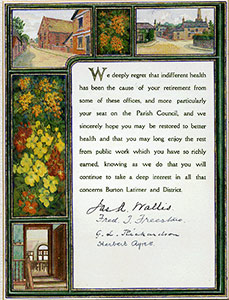 We deeply regret that indifferent health
has been the cause of your retirement from
some of these offices, and more particularly
your seat on the Parish Council, and we
sincerely hope you may be restored to better
health and that you may long enjoy the rest
from public work which you have so richly
earned, knowing as we do that you will
continue to take a deep interest in all that
concerns Burton Latimer and District.
Jas. A. Wallis
Fred J. Freestone
G. L. Richardson
Herbert